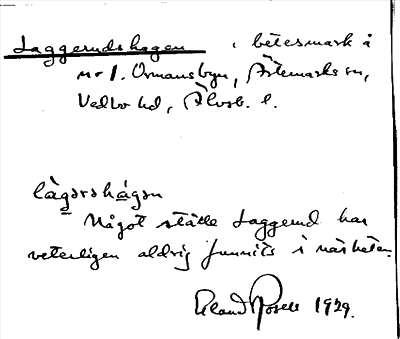 Laggerudshagen, betesmark å
nr 1. Ormansbyn, Ärtemarks sn,
Vedbo hd, Älvsb. l.
làgərshágən
Något ställe Laggerud har
veterligen aldrig funnits i närheten.
Erland Rosell 1929.